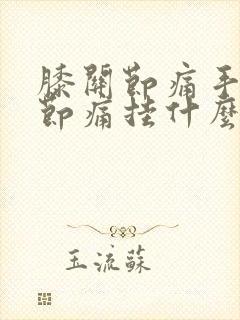 膝關節痛手
節痛挂什麼
玉流蘇